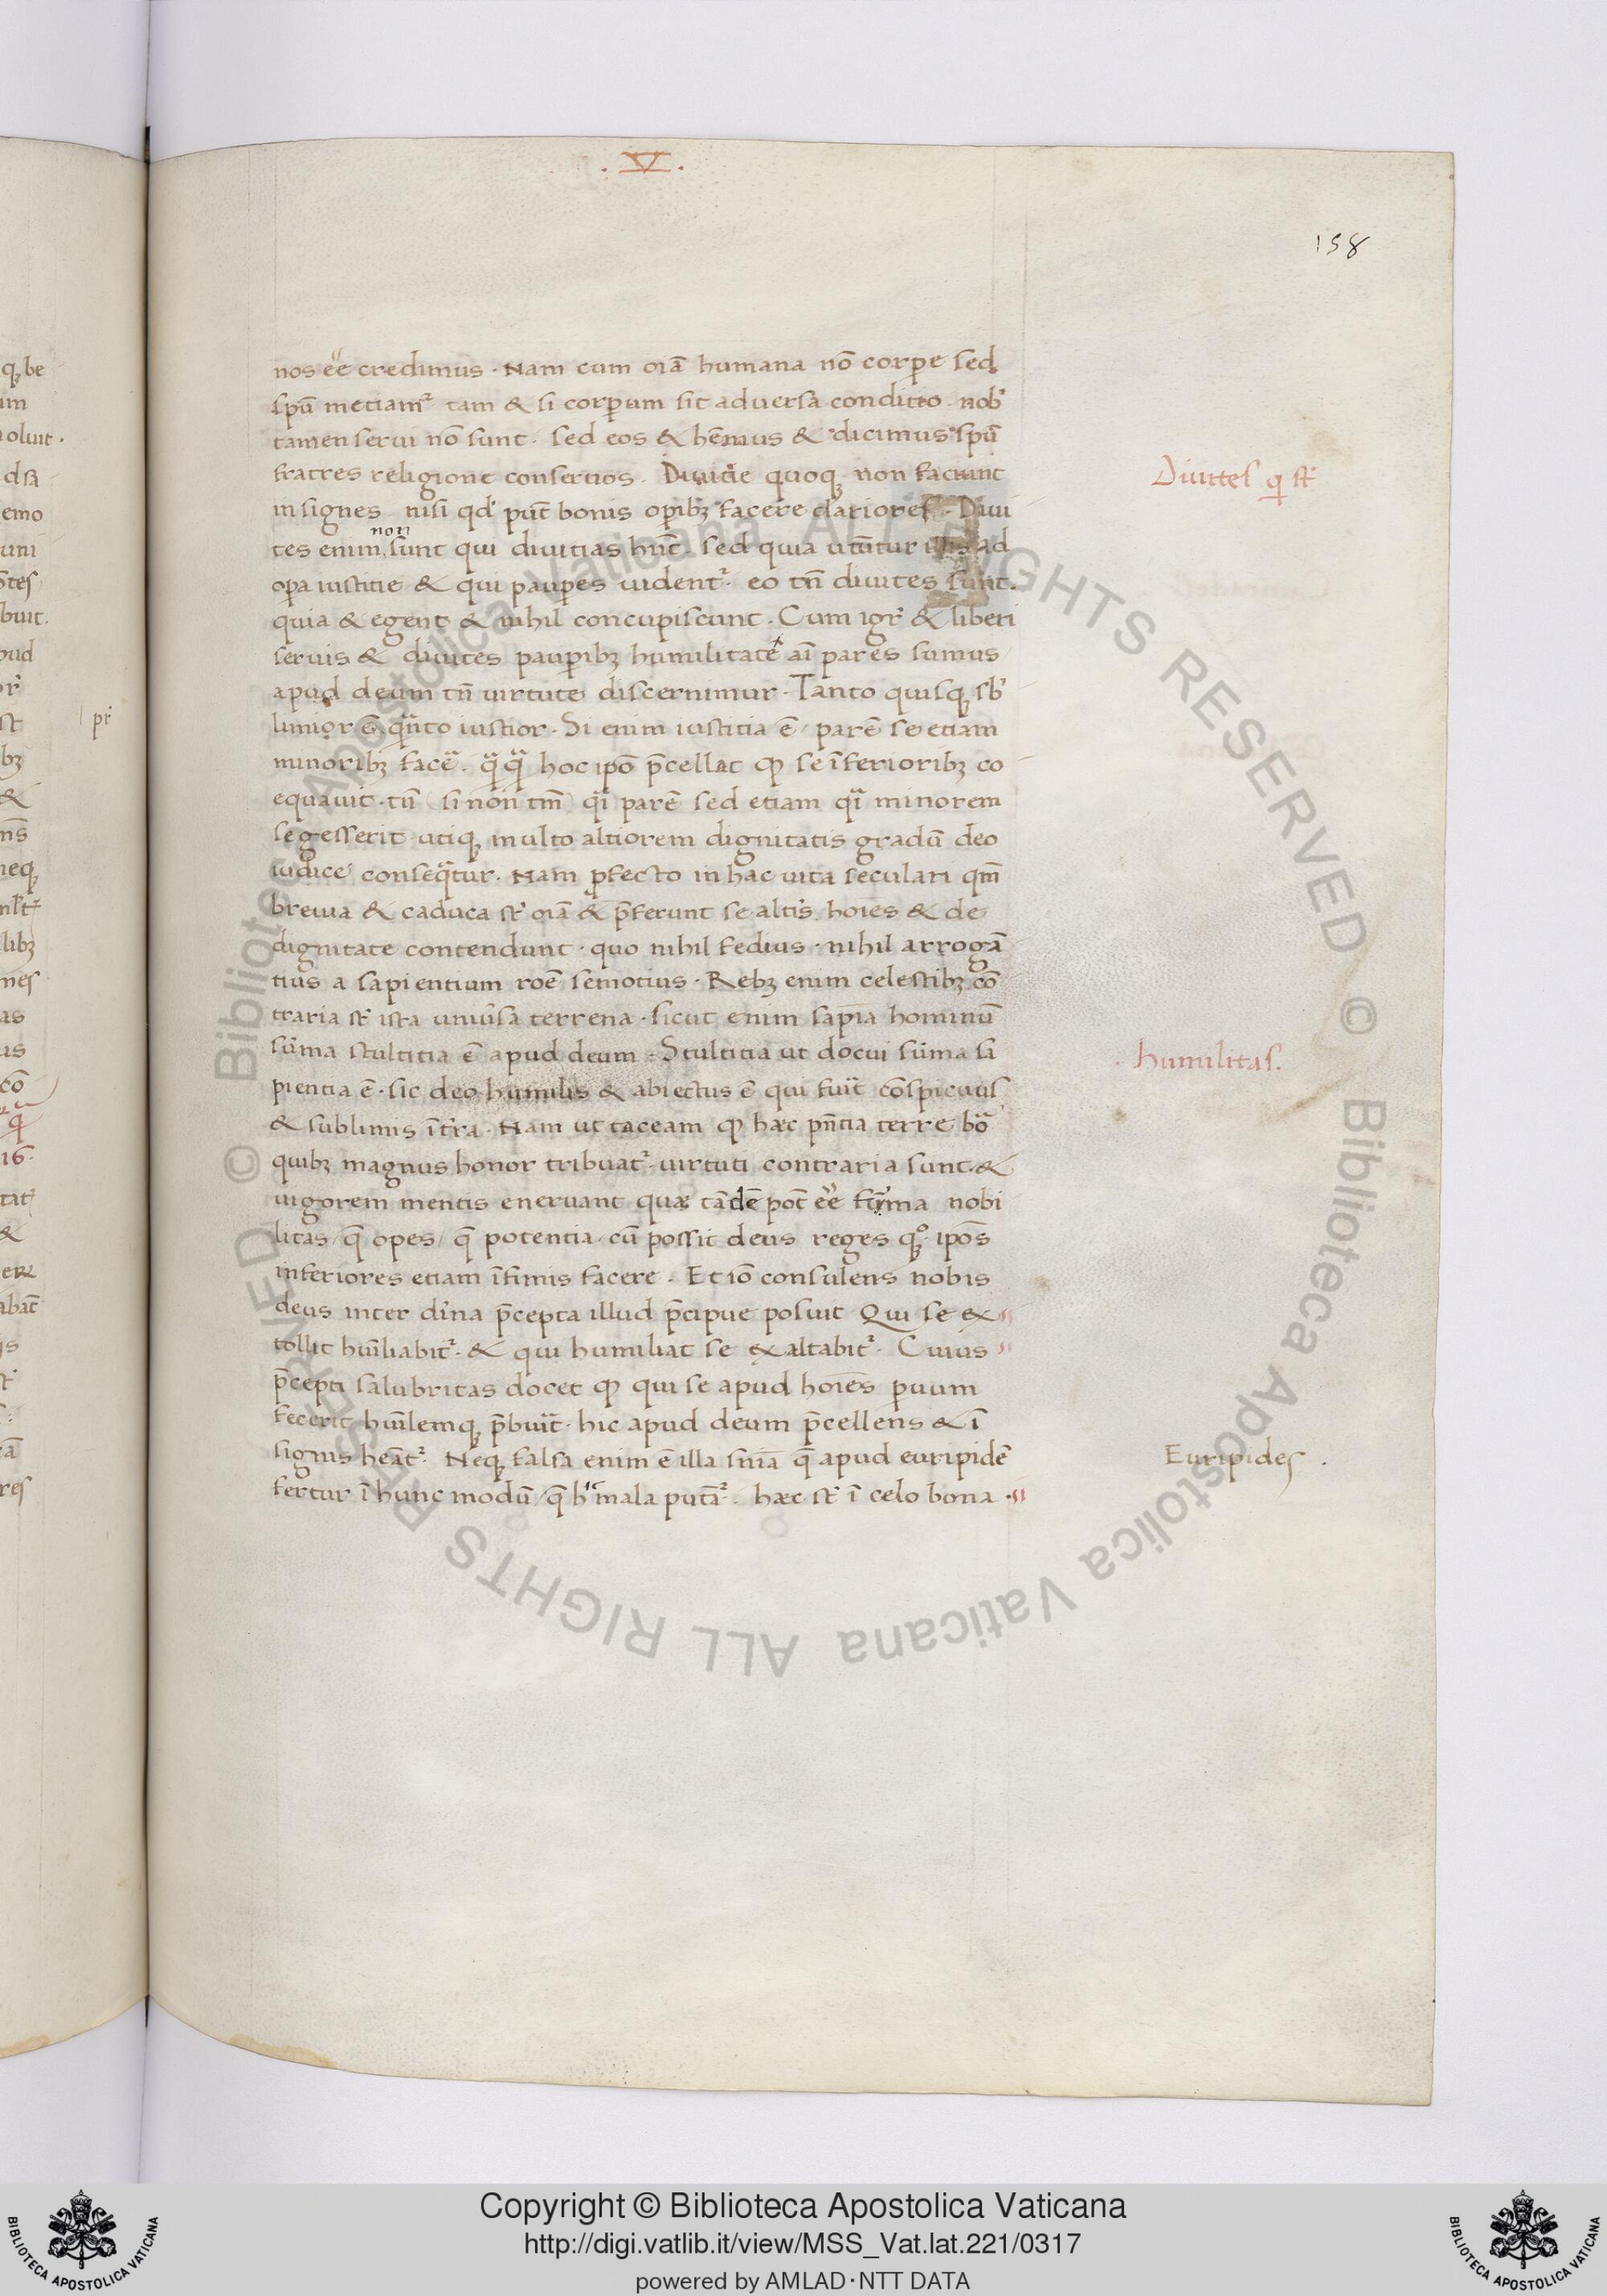 . V .
158
nos ēe credimus . Nam cum oīa humana nō corꝑe sed
spū metiamr̄ tam & si corꝑum sit aduersa conditio . nob̾
tamen serui nō sunt . sed eos & hēmus & dicimus spū
fratres religione conseruos . Diuitie quoqꝫ non faciunt
insignes nisi qd̾ pn̄t bonis oꝑibꝫ facere clariores . Diui
non
tes enim sunt qui diuitias hn̄t . sed quia utūntur illis ad
oꝑa iustitie & qui pauꝑes uidentr̄ . eo tn̄ diuites sunt .
quia & egent & nihil concupiscunt . Cum igr̄ & liberi
seruis & diuites pauꝑibꝫ humilitate aī pares sumus
apud deum tn̄ uirtute discernimur . Tanto quisqꝫ sb̾
limior ē qn̄to iustior . Si enim iustitia ē / parē se etiam
minoribꝫ facē . hoc ipō p̄cellat se īferioribꝫ co
equauit . tn̄ si non tm̄ parē sed etiam minorem
se gesserit utiqꝫ multo altiorem dignitatis gradū deo
iudice conseq̄tur . Nam ꝓfecto in hac uita seculari qm̄
breuia & caduca st̾ oīa & p̄ferunt se alt̾is hoīes & de
dignitate contendunt . quo nihil fedius . nihil arrogā
tius a sapientium roē semotius . Rebꝫ enim celestibꝫ cō
traria st̾ ista uniūsa terrena . sicut enim sapīa hominū
sūma stultitia ē apud deum . Stultitia ut docui sūma sa
pientia ē . sic deo humilis & abiectus ē qui fuīt cōspicuus
& sublimis ī t̾ra . Nam ut taceam ꝙ hæc pn̄tia terre bōa
quibꝫ magnus honor tribuatr̄ . uirtuti contraria sunt . &
uigorem mentis eneruant quæ tādē pōt ēe nobi
litas / q̄ opes / q̄ potentia / cū possit deus reges ipōs
inferiores etiam īfimis facere . Et iō consulens nobis
deus inter dīna p̄cepta illud p̄cipue posuit Qui se ex
tollit hūliabitr̄ . & qui humiliat se exaltabitr̄ . Cuius
p̄cepti salubritas docet ꝙ qui se apud hoīes ꝑuum
fecerit hūlemqꝫ p̄buīt . hic apud deum p̄cellens & ī
signis heātr̄ . Neqꝫ falsa enim ē illa snīa q̄ apud euripidē
fertur ī hunc modū / q̄ h̾ mala putār̄ . hæc st̾ ī celo bona .
Diuites q̄ st̾
humilitas .
Euripides .
qꝫ be
um
oluit .
d sā
emo
uni
buit .
pr̄
&
neqꝫ
libꝫ
nes
as
cō
16 .
&
abāt
res
© Biblioteca Apostolica Vaticana ALL RIGHTS RESERVED © Biblioteca Apostolica Vaticana ALL RIGHTS RESERVED
Copyright © Biblioteca Apostolica Vaticana
http://digi.vatlib.it/view/MSS_Vat.lat.221/0317
powered by AMLAD·NTT DATA
BIBLIOTECA APOSTOLICA VATICANA
BIBLIOTECA APOSTOLICA VATICANA